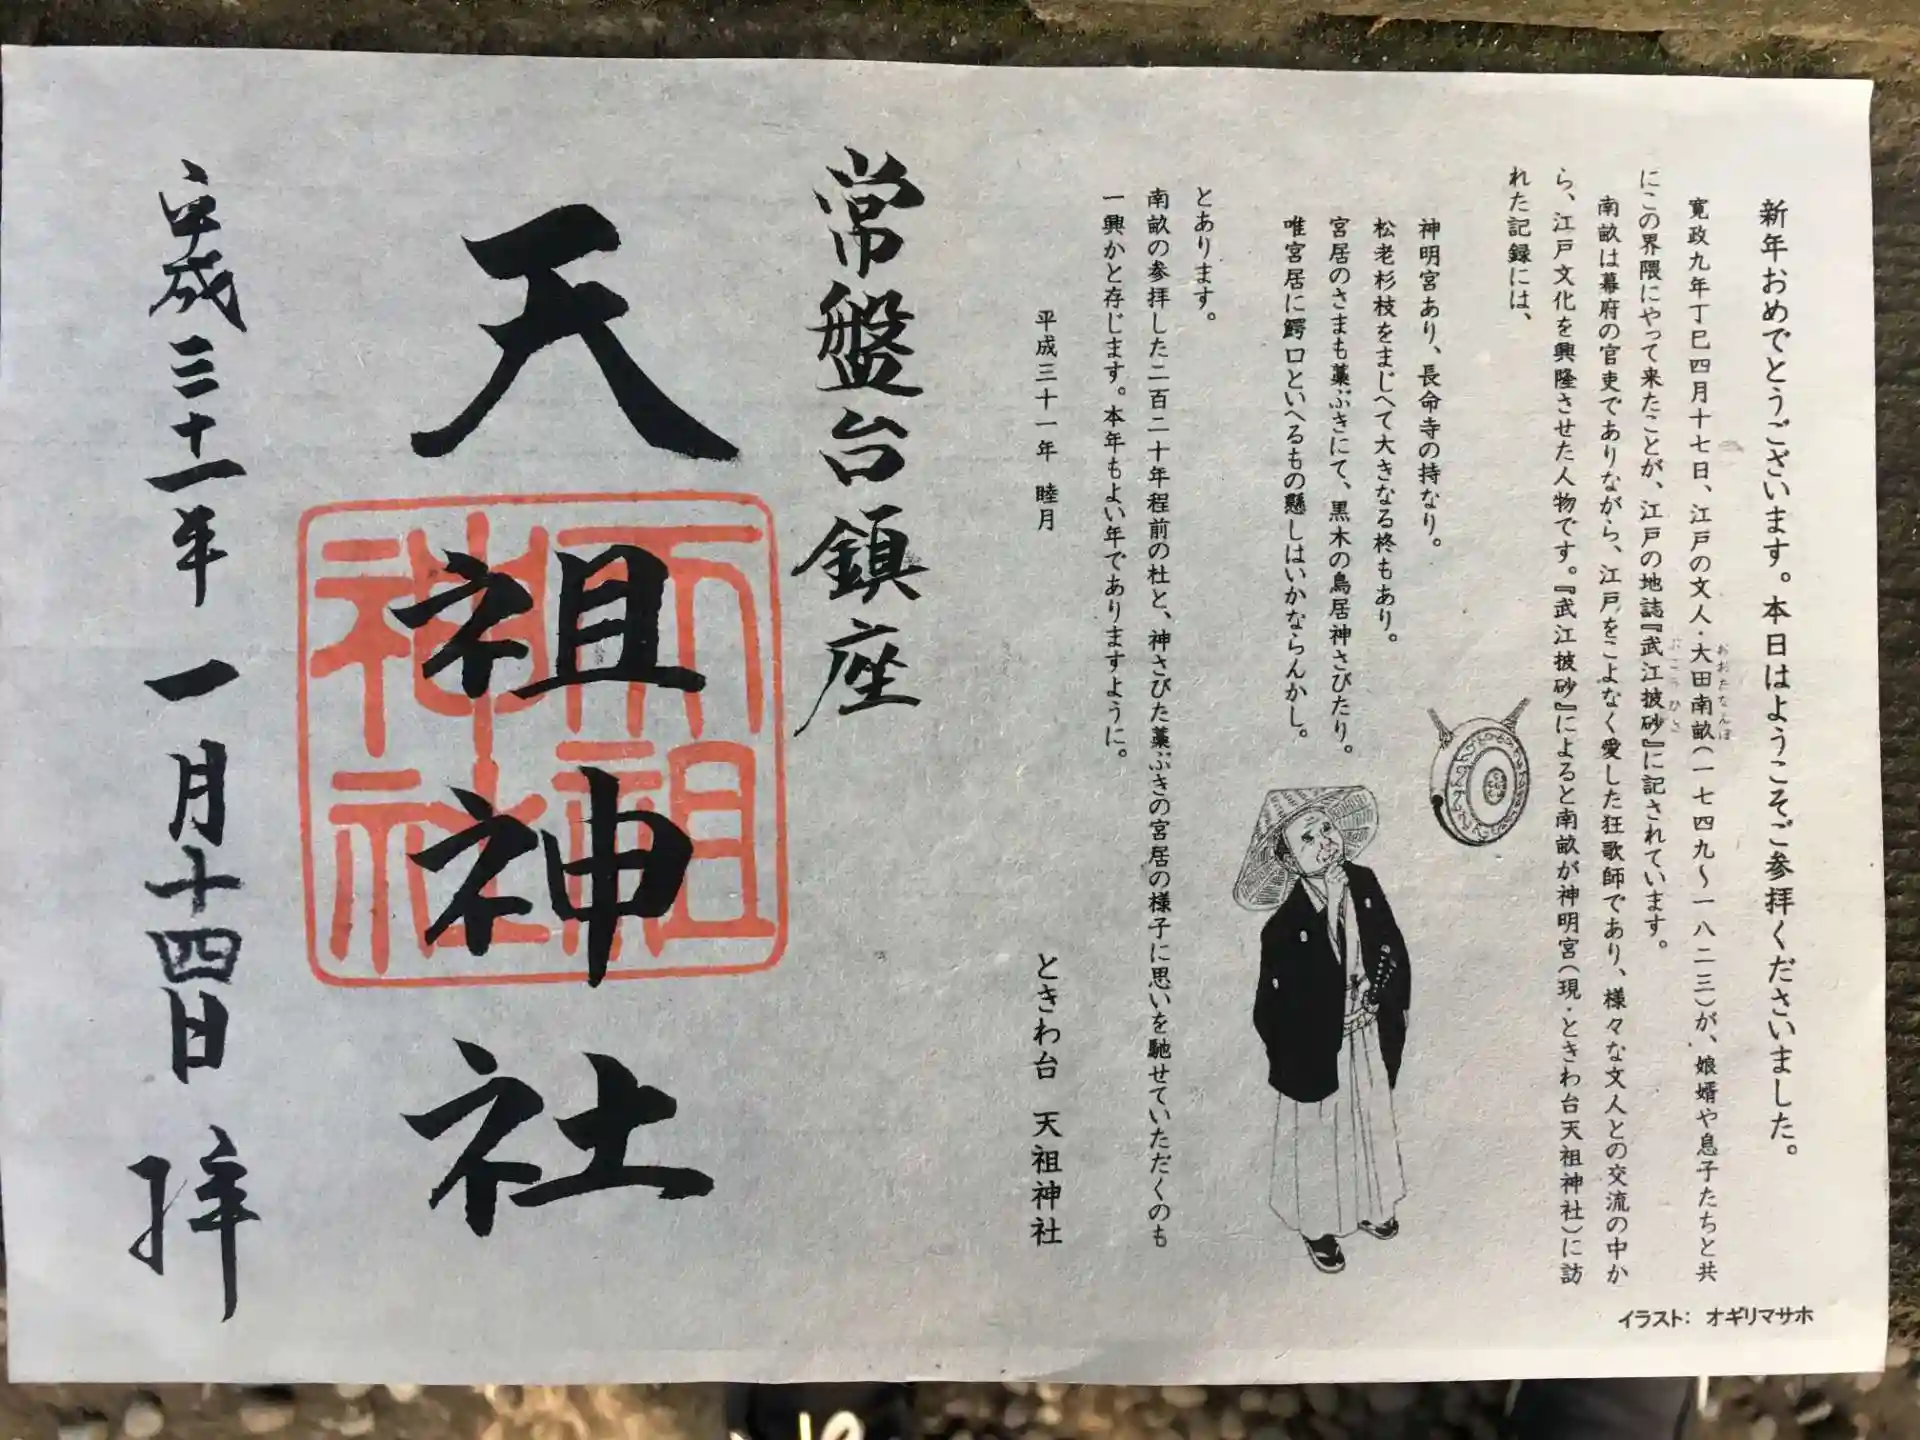 新年おめでとうございます。本日はようこそご参拝くださいました。
寛政九年丁巳四月十七日、江戸の文人・大田南畝(一七四九～一八二三)が、娘婿や息子たちと共
おおたなんぽ
にこの界隈にやって来たことが、江戸の地誌『武江披砂』に記されています。
ぶこうひさ
南畝は幕府の官吏でありながら、江戸をこよなく愛した狂歌師であり、様々な文人との交流の中か
ら、江戸文化を興隆させた人物です。『武江披砂』によると南畝が神明宮(現・ときわ台天祖神社)に訪
れた記録には、
神明宮あり、長命寺の持なり。
松老杉枝をまじへて大きなる柊もあり。
宮居のさまも藁ぶきにて、黒木の鳥居神さびたり。
唯宮居に鰐口といへるもの懸しはいかならんかし。
とあります。
南畝の参拝した二百二十年程前の杜と、神さびた藁ぶきの宮居の様子に思いを馳せていただくのも
一興かと存じます。本年もよい年でありますように。
平成三十一年 睦月
ときわ台 天祖神社
イラスト: オギリマサホ
常盤台鎮座
天祖神社
天祖神社
平成三十一年 一月十四日 拝